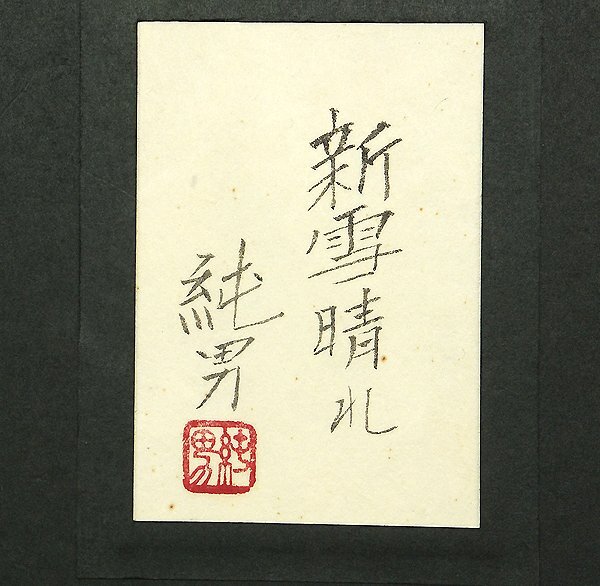 新雪晴れ
純男
純男